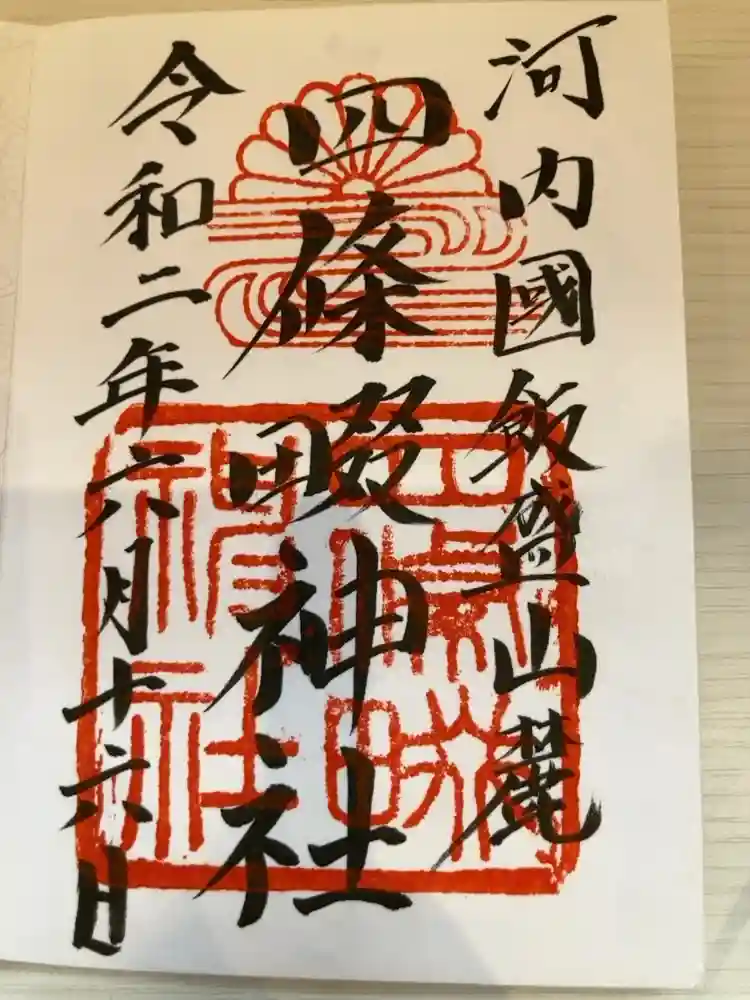 河内國飯盛山麓
四條畷神社
令和二年六月十六日
四條畷
神社